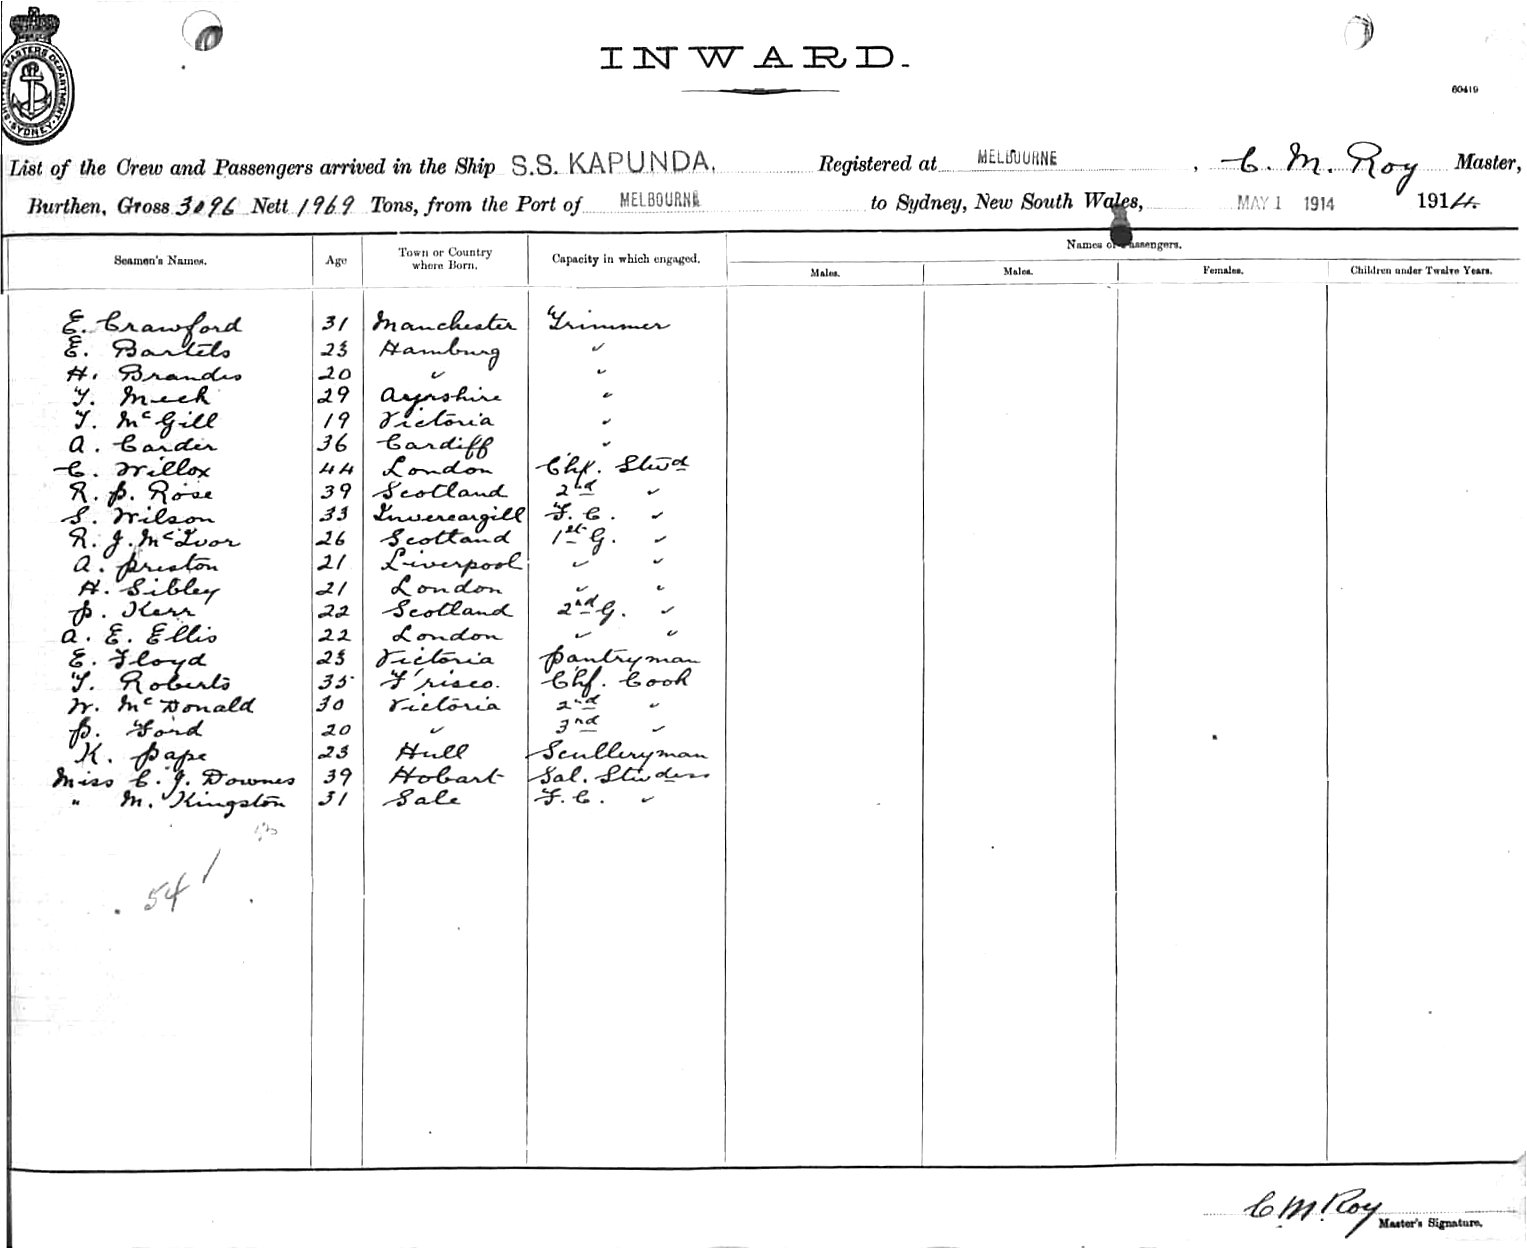 INWARD.
60419
SHIPPING MASTERS DEPARTMENT SYDNEY
List of the Crew and Passengers arrived in the Ship S.S. KAPUNDA. Registered at MELBOURNE, C. M. Roy Master,
Burthen, Gross 3096 Nett 1969 Tons, from the Port of MELBOURNE to Sydney, New South Wales, MAY 1 1914 1914.
Names of Passengers.
Seamen's Names. Age Town or Country where Born. Capacity in which engaged. Males. Males. Females. Children under Twelve Years.
E. Crawford 31 Manchester Trimmer
E. Bartels 23 Hamburg "
H. Brandis 20 " "
T. Meek 29 Ayrshire "
T. McGill 19 Victoria "
A. Carder 36 Cardiff "
C. Willox 44 London Chf. Stwd
R. P. Rose 39 Scotland 2nd "
S. Wilson 33 Invercargill F. C. "
R. J. McIvor 26 Scotland 1st G. "
A. Preston 21 Liverpool " "
H. Sibley 21 London " "
P. Kerr 22 Scotland 2nd G. "
A. E. Ellis 22 London " "
E. Floyd 23 Victoria Pantryman
T. Roberts 35 F'risco. Chf. Cook
W. McDonald 30 Victoria 2nd "
P. Ford 20 " 3rd "
K. Pape 23 Hull Sculleryman
Miss C. J. Downes 39 Hobart Sal. Stwdess
" M. Kingston 31 Sale F. C. "
54
C M Roy
Master's Signature.